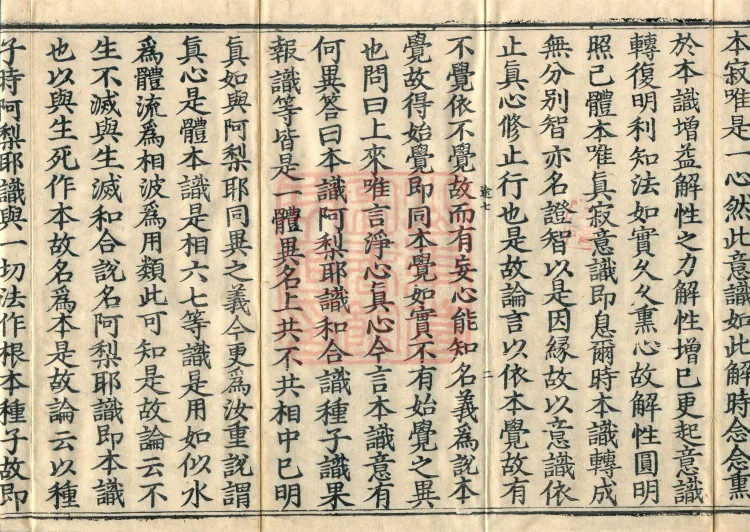 本寂唯是一心然此意識如此解時念念熏
於本識增益解性之力解性增已更起意識
轉復明利知法如實久久熏心故解性圓明
照己體本唯眞寂意識即息爾時本識轉成
無分別智亦名證智以是因緣故以意識依
止眞心修止行也是故論言以依本覺故有
不覺依不覺故而有妄心能知名義爲說本
覺故得始覺即同本覺如實不有始覺之異
也問曰上來唯言淨心眞心今言本識意有
何異答曰本識阿梨耶識和合識種子識果
報識等皆是一體異名上共不共相中已明
眞如與阿梨耶同異之義今更爲汝重說謂
眞心是體本識是相六七等識是用如似水
爲體流爲相波爲用類此可知是故論云不
生不滅與生滅和合說名阿梨耶識即本識
也以與生死作本故名爲本是故論云以種
子時阿梨耶識與一切法作根本種子故即